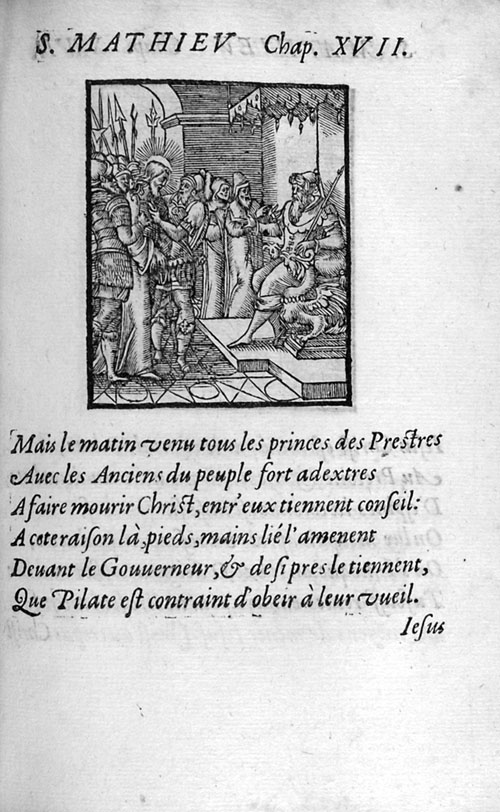 S. MATHIEV Chap. XVII.
Mais le matin venu tous les princes des Prestres
Auec les Anciens du peuple fort adextres
A faire mourir Christ, entr' eux tiennent conseil:
A ceteraison là, pieds, mains lié l'amenent
Deuant le Gouuerneur, & de si pres le tiennent,
Que Pilate est contraint d'obeir à leur vueil.
Iesus